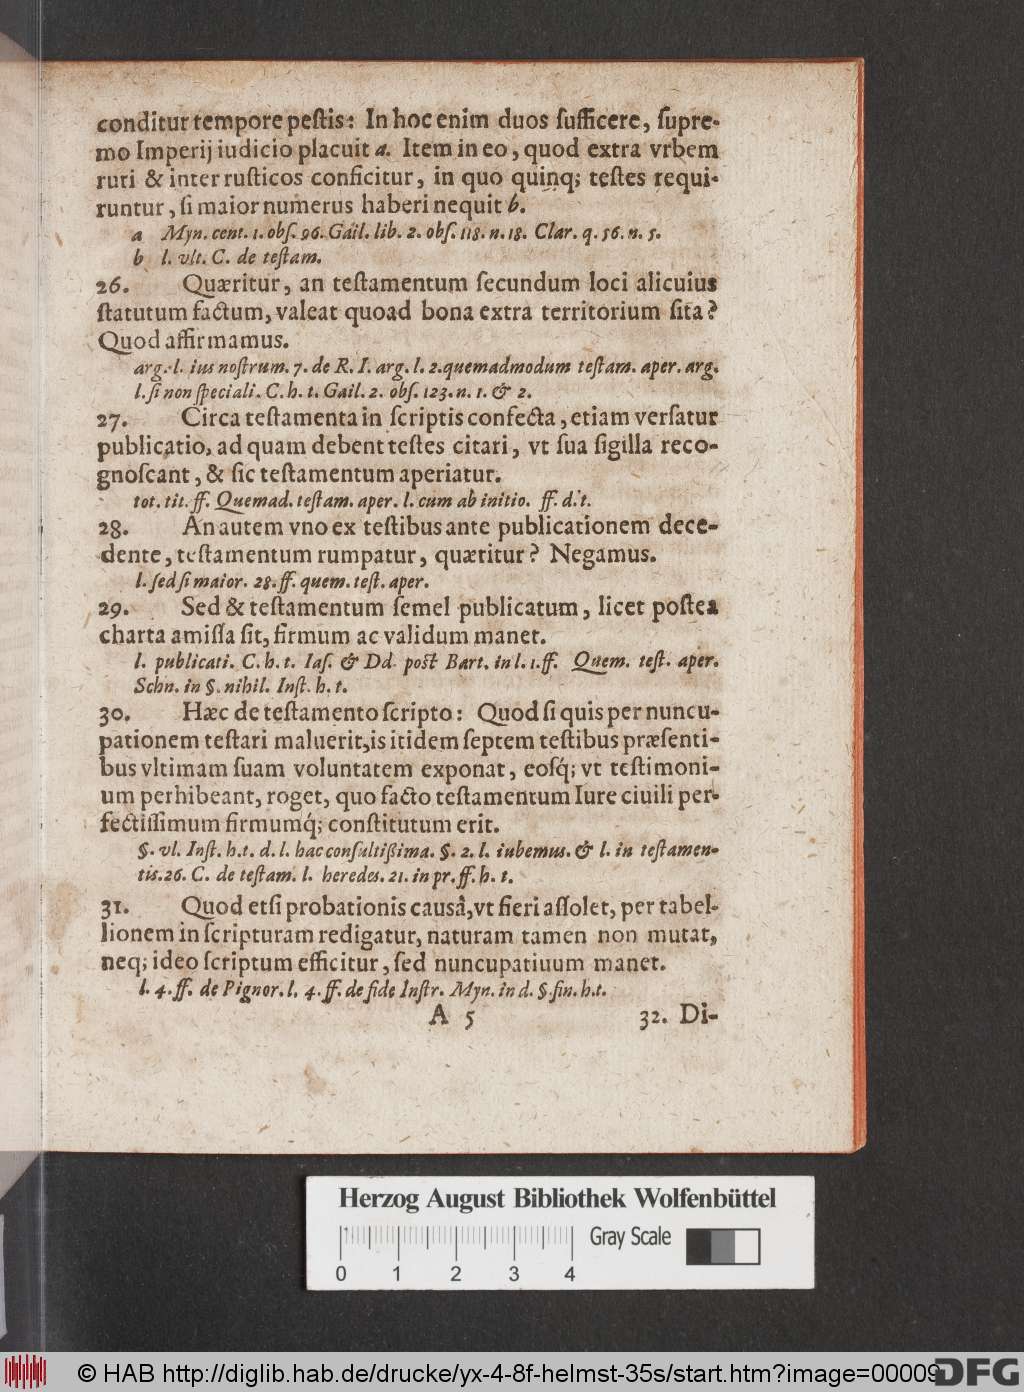 conditur tempore peſtis: In hoc enim duos ſufficere, ſupre-
mo Imperij iudicio placuit a. Item in eo, quod extra vrbem
ruri & inter ruſticos conficitur, in quo quinq; teſtes requi-
runtur, ſi maior numerus haberi nequit b.
a Myn. cent. 1. obſ. 96. Gail. lib. 2. obſ. 118. n. 18. Clar. q. 56. n. 5.
b l. vlt. C. de teſtam.
26. Quæritur, an teſtamentum ſecundum loci alicuius
ſtatutum factum, valeat quoad bona extra territorium ſita?
Quod affirmamus.
arg. l. ius noſtrum. 7. de R. I. arg. l. 2. quemadmodum teſtam. aper. arg.
l. ſi non ſpeciali. C. h. t. Gail. 2. obſ. 123. n. 1. & 2.
27. Circa teſtamenta in ſcriptis confecta, etiam verſatur
publicatio, ad quam debent teſtes citari, vt ſua ſigilla reco-
gnoſcant, & ſic teſtamentum aperiatur.
tot. tit. ff. Quemad. teſtam. aper. l. cum ab initio. ff. d. t.
28. An autem vno ex teſtibus ante publicationem dece-
dente, teſtamentum rumpatur, quæritur? Negamus.
l. ſed ſi maior. 28. ff. quem. teſt. aper.
29. Sed & teſtamentum ſemel publicatum, licet poſtea
charta amiſſa ſit, firmum ac validum manet.
l. publicati. C. h. t. Iaſ. & Dd. poſt Bart. in l. 1. ff. Quem. teſt. aper.
Schn. in §. nihil. Inſt. h. t.
30. Hæc de teſtamento ſcripto: Quod ſi quis per nuncu-
pationem teſtari maluerit, is itidem ſeptem teſtibus præſenti-
bus vltimam ſuam voluntatem exponat, eoſq́; vt teſtimoni-
um perhibeant, roget, quo facto teſtamentum Iure ciuili per-
fectiſſimum firmumq́; conſtitutum erit.
§. vl. Inſt. h. t. d. l. hac conſultißima. §. 2. l. iubemus. & l. in teſtamen-
tis. 26. C. de teſtam. l. heredes. 21. in pr. ff. h. t.
31. Quod etſi probationis causâ, vt fieri aſſolet, per tabel-
lionem in ſcripturam redigatur, naturam tamen non mutat,
neq; ideo ſcriptum efficitur, ſed nuncupatiuum manet.
l. 4. ff. de Pignor. l. 4. ff. de fide Inſtr. Myn. in d. §. fin. h. t.
A 5 32. Di-
Herzog August Bibliothek Wolfenbüttel
Gray Scale
0 1 2 3 4
© HAB http://diglib.hab.de/drucke/yx-4-8f-helmst-35s/start.htm?image=00009
DFG